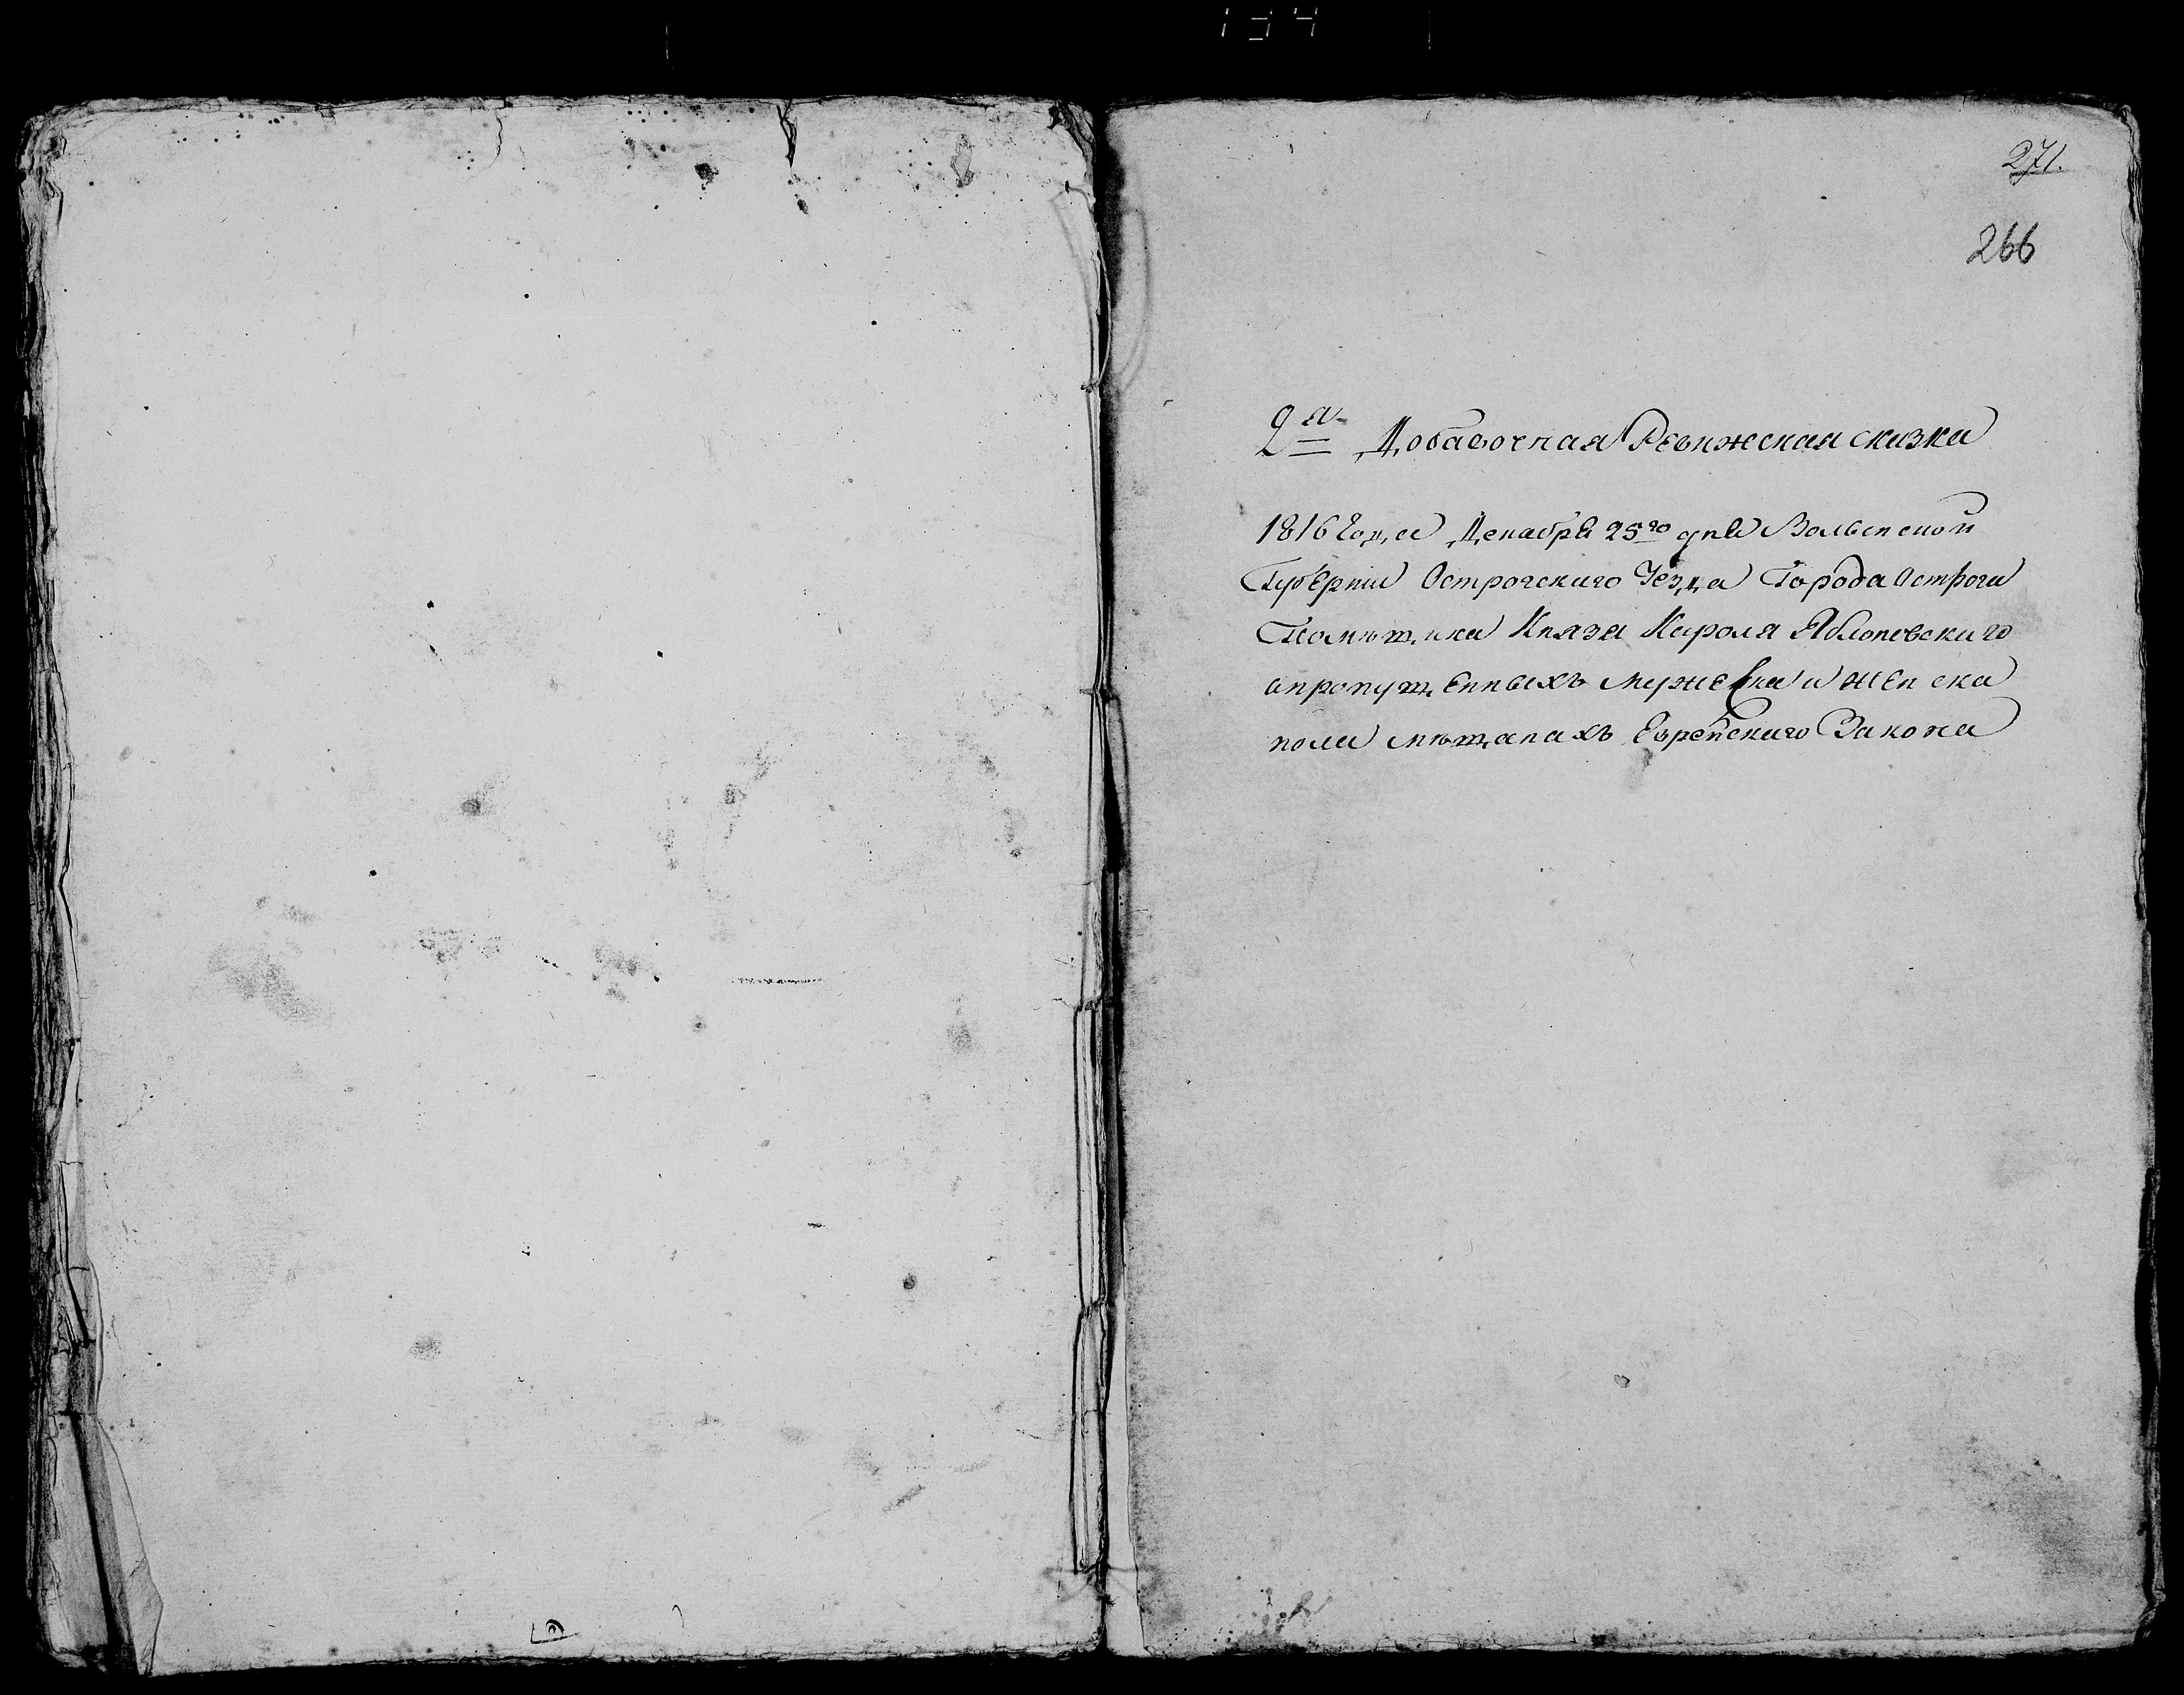 271.
266
2я Добавочная Ревижская сказка
1816 Года Декабря 25го дня Волынской
Губернии Острогского Уезда Города Острога
Помѣщика Князя Кароля Яблоновского
опропущенныхъ мужеска и женска
пола мѣщанахъ Еврейскаго Закона